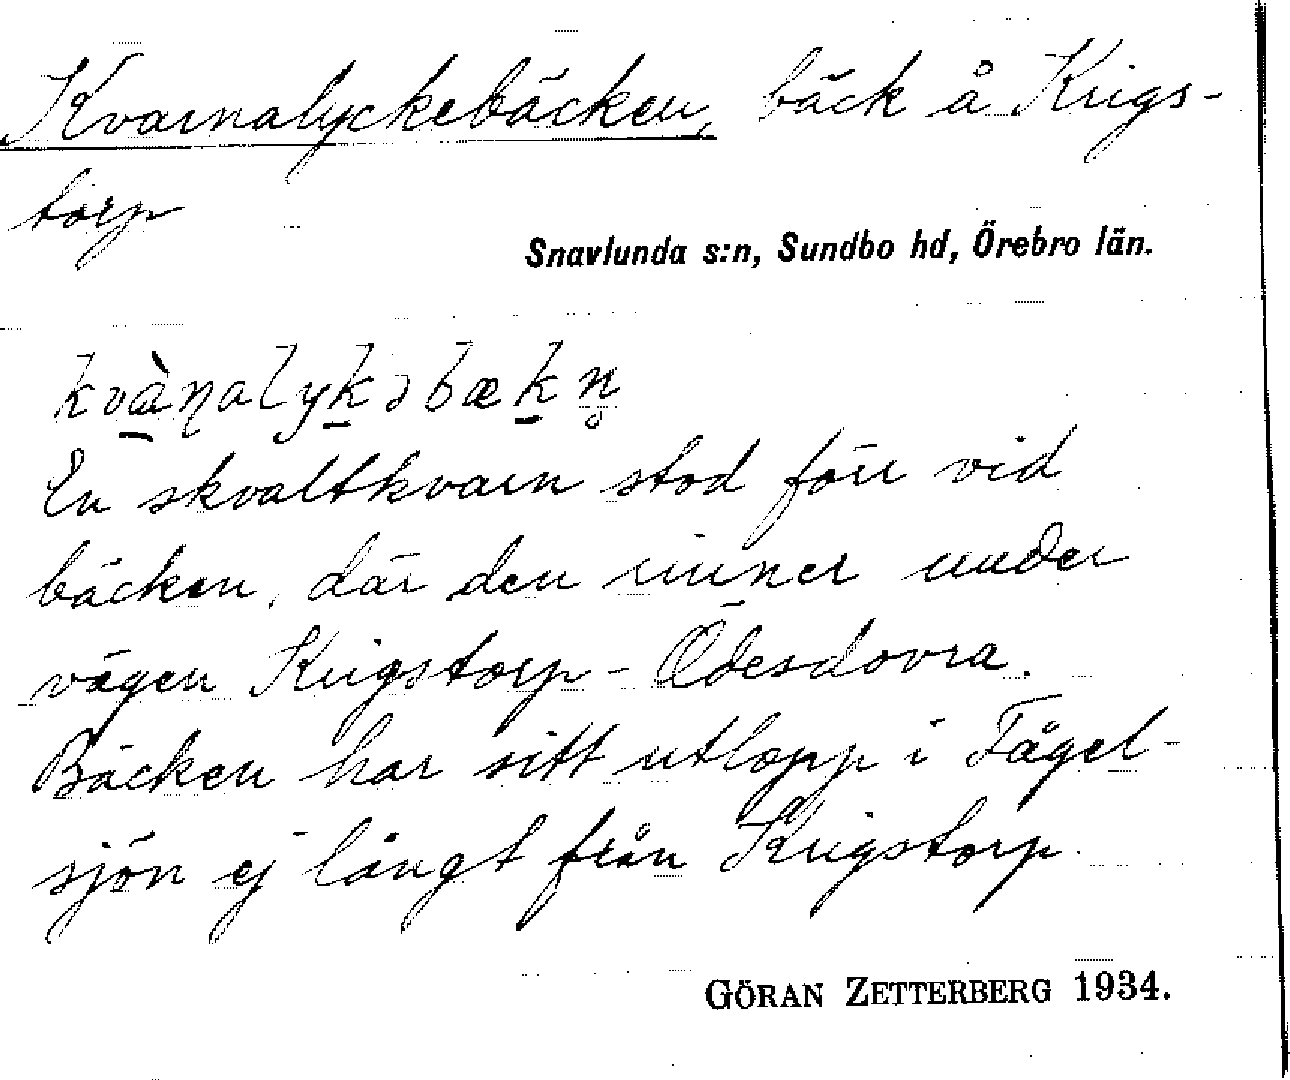 Kvarnalyckebäcken, bäck å Krigs-
torp
Snavlunda s:n, Sundbo hd, Örebro län.
kvàṇalykəbækn̥
En skvaltkvarn stod förr vid
bäcken, där den rinner under
vägen Krigstorp - Ödesdovra.
Bäcken har sitt utlopp i Fågel-
sjön ej långt från Krigstorp.
GÖRAN ZETTERBERG 1934.